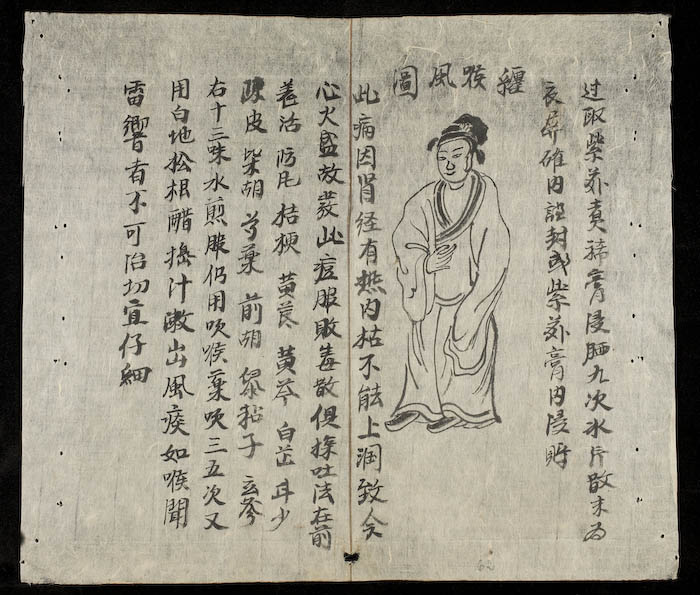 过取紫苏煮稀膏浸晒九次氷片散末为
衣并確内封或紫苏膏内浸贮
纒喉風圖
此病因肾经有热内枯不能上润致令
心火盛故发此症服败毒散俱探吐法在前
羌活 防风 桔梗 黄芪 黄芩 白芷 甘少
陳皮 柴胡 芍薬 前胡 黍粘子 玄参
右十三味水煎服仍用吹喉薬吹三五次又
用白地松根醋搗汁漱出風痰如喉聞
雷響者不可治切宜仔細
62